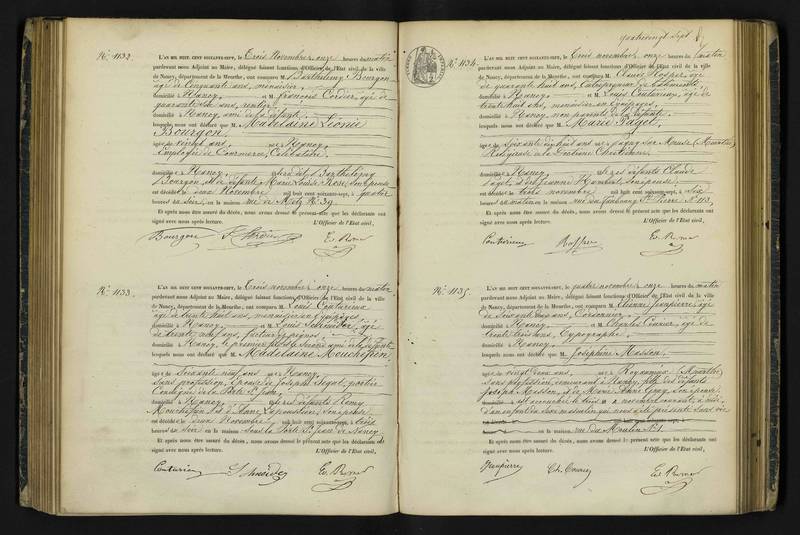 N° 1132.
L'AN MIL HUIT CENT SOIXANTE-SEPT, le Trois Novembre, onze heures du matin
pardevant nous Adjoint au Maire, délégué faisant fonctions d'Officier de l'État civil de la ville
de Nancy, département de la Meurthe, ont comparu M. Barthélemy Bourgon
âgé de Cinquante ans, menuisier,
domicilié à Nancy, et M. François Cordier, âgé de
quarante six ans, rentier,
domicilié à Nancy, ami de la défunte
lesquels nous ont déclaré que M. Madelaine Léonie
Bourgon,
âgée de vingt ans, née à Nancy,
Employée de Commerce, Célibataire,
domiciliée à Nancy, fille de Barthélemy
Bourgon, et de défunte Marie Louise Rose, son épouse
est décédée le deux Novembre mil huit cent soixante-sept, à quatre
heures du soir, en la maison rue de Metz N° 39.
Et après nous être assuré du décès, nous avons dressé le présent acte que les déclarants ont
signé avec nous après lecture. L'Officier de l'État civil,
Bourgon
N° 1133.
L'AN MIL HUIT CENT SOIXANTE-SEPT, le Trois novembre, onze heures du matin
pardevant nous Adjoint au Maire, délégué faisant fonctions d'Officier de l'État civil de la ville
de Nancy, département de la Meurthe, ont comparu M. Louis Couturieux
âgé de trente huit ans, menuisier en Equipages,
domicilié à Nancy, et M. Louis Schneider, âgé
de trente neuf ans, facteur
domicilié à Nancy, le premier le second ami de la défunte
lesquels nous ont déclaré que M. Madelaine Mouchefrin
âgée de Soixante neuf ans, née à Nancy,
Sans profession, Epouse de Joseph portier
Consigne de la Porte St Jean,
domiciliée à Nancy, fille des défunts Rémy
Mouchefrin et de Marie son épouse
est décédée le deux Novembre mil huit cent soixante-sept, à trois
heures du soir en la maison sous la Porte St Jean de Nancy
Et après nous être assuré du décès, nous avons dressé le présent acte que les déclarants ont
signé avec nous après lecture. L'Officier de l'État civil,
Couturieux Schneider
quatrevingt sept
N° 1134.
L'AN MIL HUIT CENT SOIXANTE-SEPT, le Trois novembre, onze heures du matin
pardevant nous Adjoint au Maire, délégué faisant fonctions d'Officier de l'État civil de la ville
de Nancy, département de la Meurthe, ont comparu M. Claude âgé
de quarante huit ans, Entrepreneur de bâtiments
domicilié à Nancy, et M. Louis Couturieux, âgé de
trente huit ans, menuisier en Equipages,
domicilié à Nancy, non parents de la défunte
lesquels nous ont déclaré que M. Marie Paget,
âgée de Soixante dix huit ans, née à Pagny sur Meuse (Meurthe)
Religieuse de la Doctrine Chrétienne,
domiciliée à Nancy, fille des défunts Claude
Paget, et de Jeanne Humbert, son épouse,
est décédée le trois novembre mil huit cent soixante-sept, à six
heures du matin en la maison rue du faubourg St Pierre N° 113.
Et après nous être assuré du décès, nous avons dressé le présent acte que les déclarants ont
signé avec nous après lecture. L'Officier de l'État civil,
Couturieux
N° 1135.
L'AN MIL HUIT CENT SOIXANTE-SEPT, le quatre novembre, onze heures du matin
pardevant nous Adjoint au Maire, délégué faisant fonctions d'Officier de l'État civil de la ville
de Nancy, département de la Meurthe, ont comparu M. Etienne Jeanpierre, âgé
de Soixante ans, Cordonnier,
domicilié à Nancy, et M. Charles âgé de
trente trois ans, Typographe,
domicilié à Nancy,
lesquels nous ont déclaré que M. Joséphine Masson,
âgée de vingt deux ans, née à Royaumeix (Meurthe)
Sans profession, demeurant à Nancy, fille des défunts
Joseph Masson, et de Marie Anne son épouse
est accouchée le trois novembre courant, à midi,
d'un enfant du sexe masculin qui nous a été présenté sans vie
en la maison rue du Moulin N° 1.
Et après nous être assuré du décès, nous avons dressé le présent acte que les déclarants ont
signé avec nous après lecture. L'Officier de l'État civil,
Jeanpierre